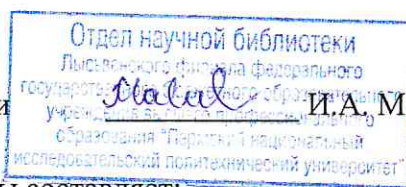 Отдел научной библиотеки
Лысьвенского филиала федерального
государственного образовательного
и И.А. М
учреждения высшего профессионального
образования "Пермский национальный
исследовательский политехнический университет"
составляет: